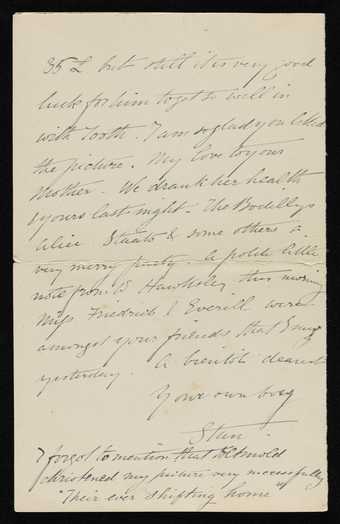 35£ but still it is very good
luck for him to get so well in
with Tooth. I am so glad you liked
the picture. My love to your
Mother. We drank her health
& yours last night. The Bodillys
Alice Staats & some others a
very merry party. A polite little
note from Hawksley this morning
Miss Fredrick & Everill were
amongst your friends that I
yesterday. A bientôt dearest
Your own boy
Stan.
I forgot to mention that
christened my picture very successfully
"Their ever shifting home"